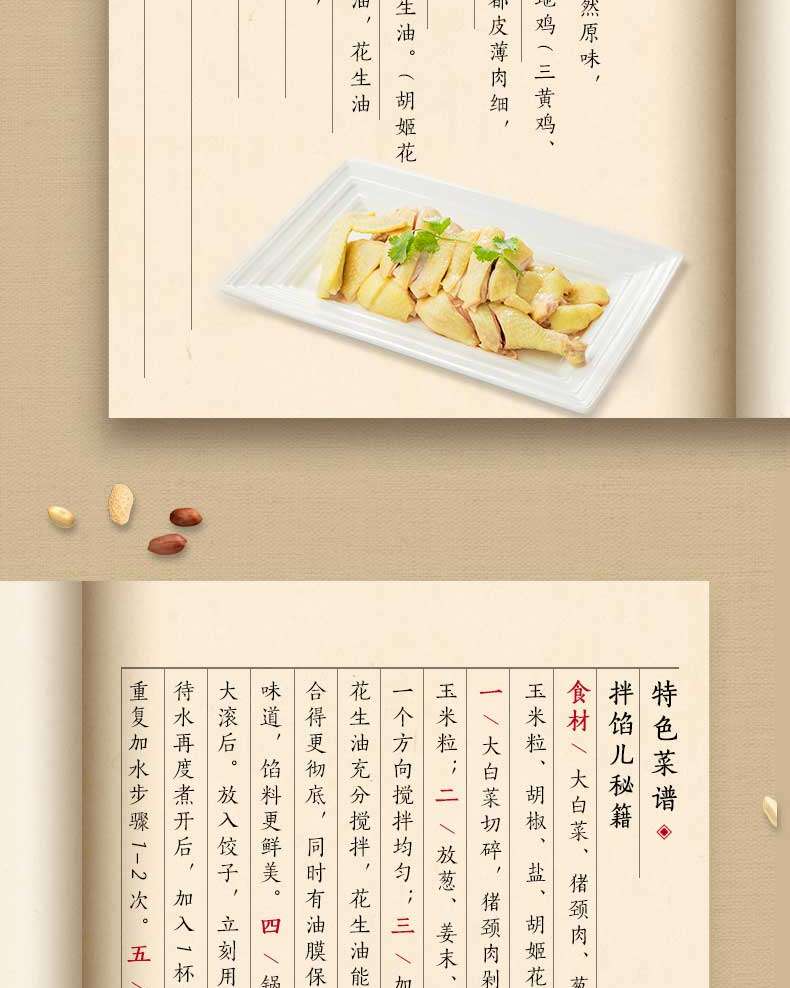 然原味，
地鸡（三黄鸡、
都皮薄肉细，
生油。（胡姬花
油，花生油
特色菜谱
拌馅儿秘籍
食材／大白菜、猪颈肉、葱
玉米粒、胡椒、盐、胡姬花
一／大白菜切碎，猪颈肉剁
玉米粒；二／放葱、姜末、
一个方向搅拌均匀；三／加
花生油充分搅拌，花生油能
合得更彻底，同时有油膜保
味道，馅料更鲜美。四／锅
大滚后。放入饺子，立刻用
待水再度煮开后，加入1杯
重复加水步骤1-2次。五／